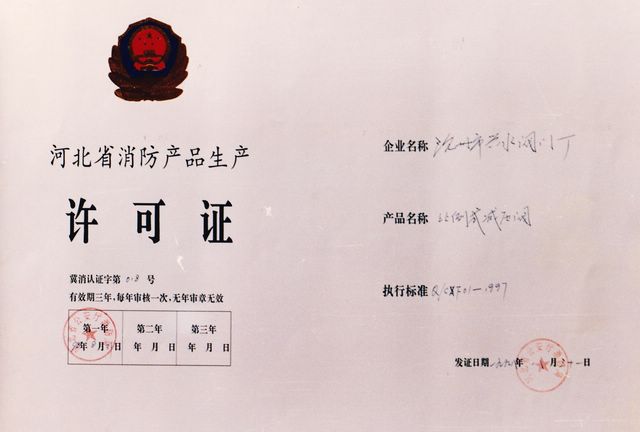 河北省消防产品生产
许可证
冀消认证字第 018 号
有效期三年，每年审核一次，无年审章无效
第一年 第二年 第三年
年 8 月 日 年 月 日 年 月 日
企业名称 沧州市兴水阀门厂
产品名称 比例式减压阀
执行标准 Q/CXF01-1997
发证日期 一九九 年 月 三十一 日